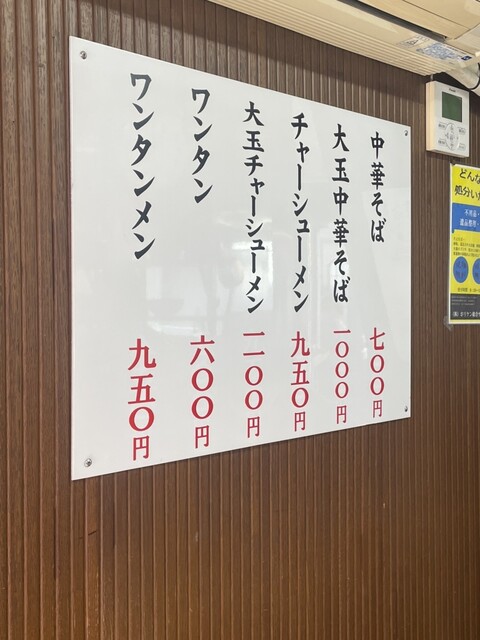 中華そば 七〇〇円
大玉中華そば 一〇〇〇円
チャーシューメン 九五〇円
大玉チャーシューメン 一二〇〇円
ワンタン 六〇〇円
ワンタンメン 九五〇円
どんな
処分いた
不用品・